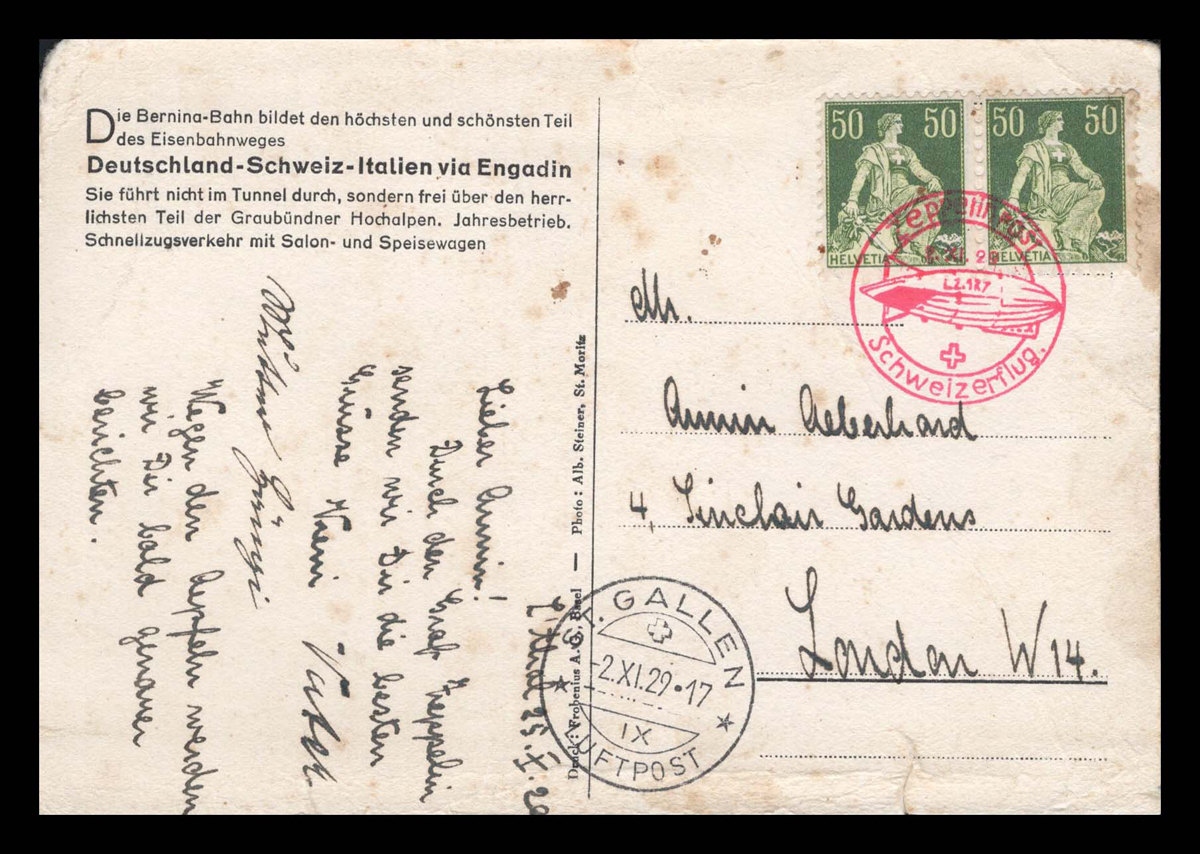 Die Bernina-Bahn bildet den höchsten und schönsten Teil
des Eisenbahnweges
Deutschland-Schweiz-Italien via Engadin
Sie führt nicht im Tunnel durch, sondern frei über den herr-
lichsten Teil der Graubündner Hochalpen. Jahresbetrieb.
Schnellzugsverkehr mit Salon- und Speisewagen
50 50
HELVETIA
50 50
HELVETIA
Zeppelin Post
XI. 29
L.Z.127
Schweizerflug.
Mr.
Armin Aeberhard
4, Sinclair Gardens
London W 14.
ST. GALLEN
-2.XI.29.17
IX
LUFTPOST
Druck: Frobenius A. G., Basel — Photo: Alb. Steiner, St. Moritz
25. X. 29
Lieber Armin!
Durch den Graf Zeppelin
senden wir Dir die besten
Grüsse Dein Vater.
Wegen den Aepfeln werden
wir Dir bald genauer
berichten.